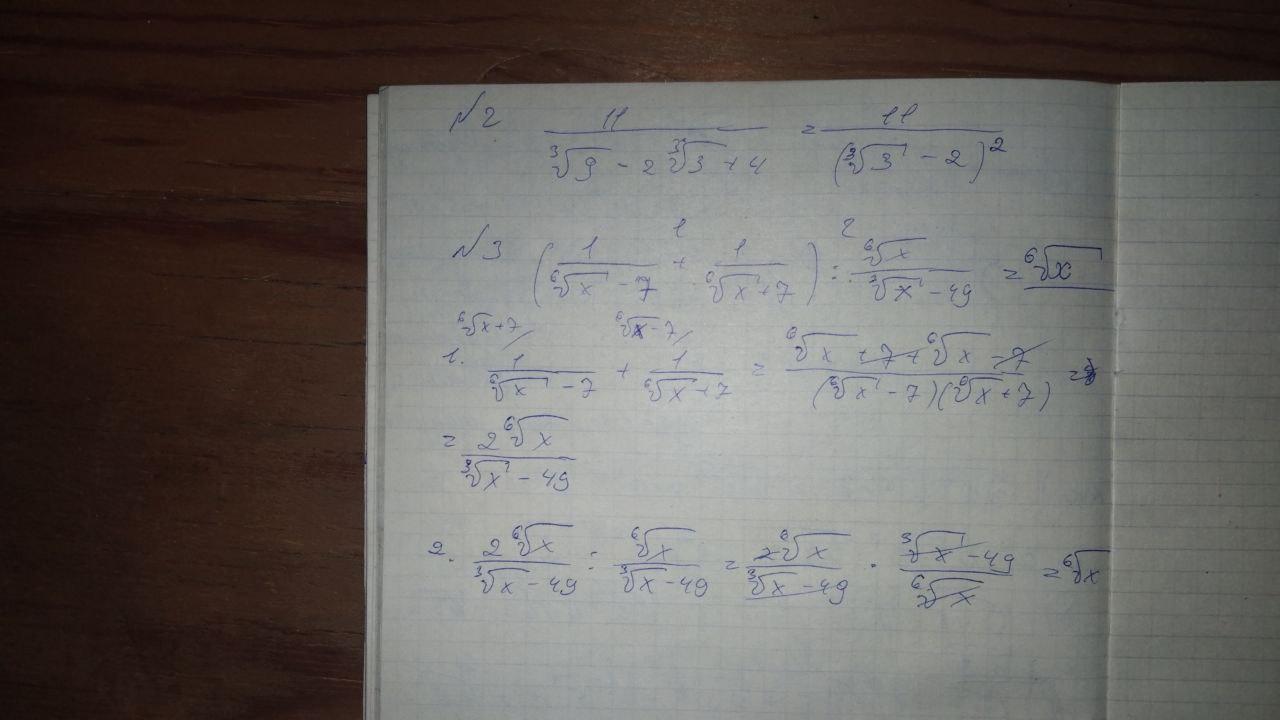 №2 11/(∛9 - 2∛3 + 4) = 11/(∛3 - 2)²
№3 (1/(⁶√x - 7) + 1/(⁶√x + 7)) : ⁶√x/(∛x - 49) = ⁶√x
1 2
⁶√x+7/ ⁶√x-7/
1. 1/(⁶√x - 7) + 1/(⁶√x + 7) = (⁶√x + 7 + ⁶√x - 7)/((⁶√x - 7)(⁶√x + 7)) =
= 2⁶√x/(∛x - 49)
2. 2⁶√x/(∛x - 49) : ⁶√x/(∛x - 49) = 2⁶√x/(∛x - 49) · (∛x - 49)/⁶√x = ⁶√x